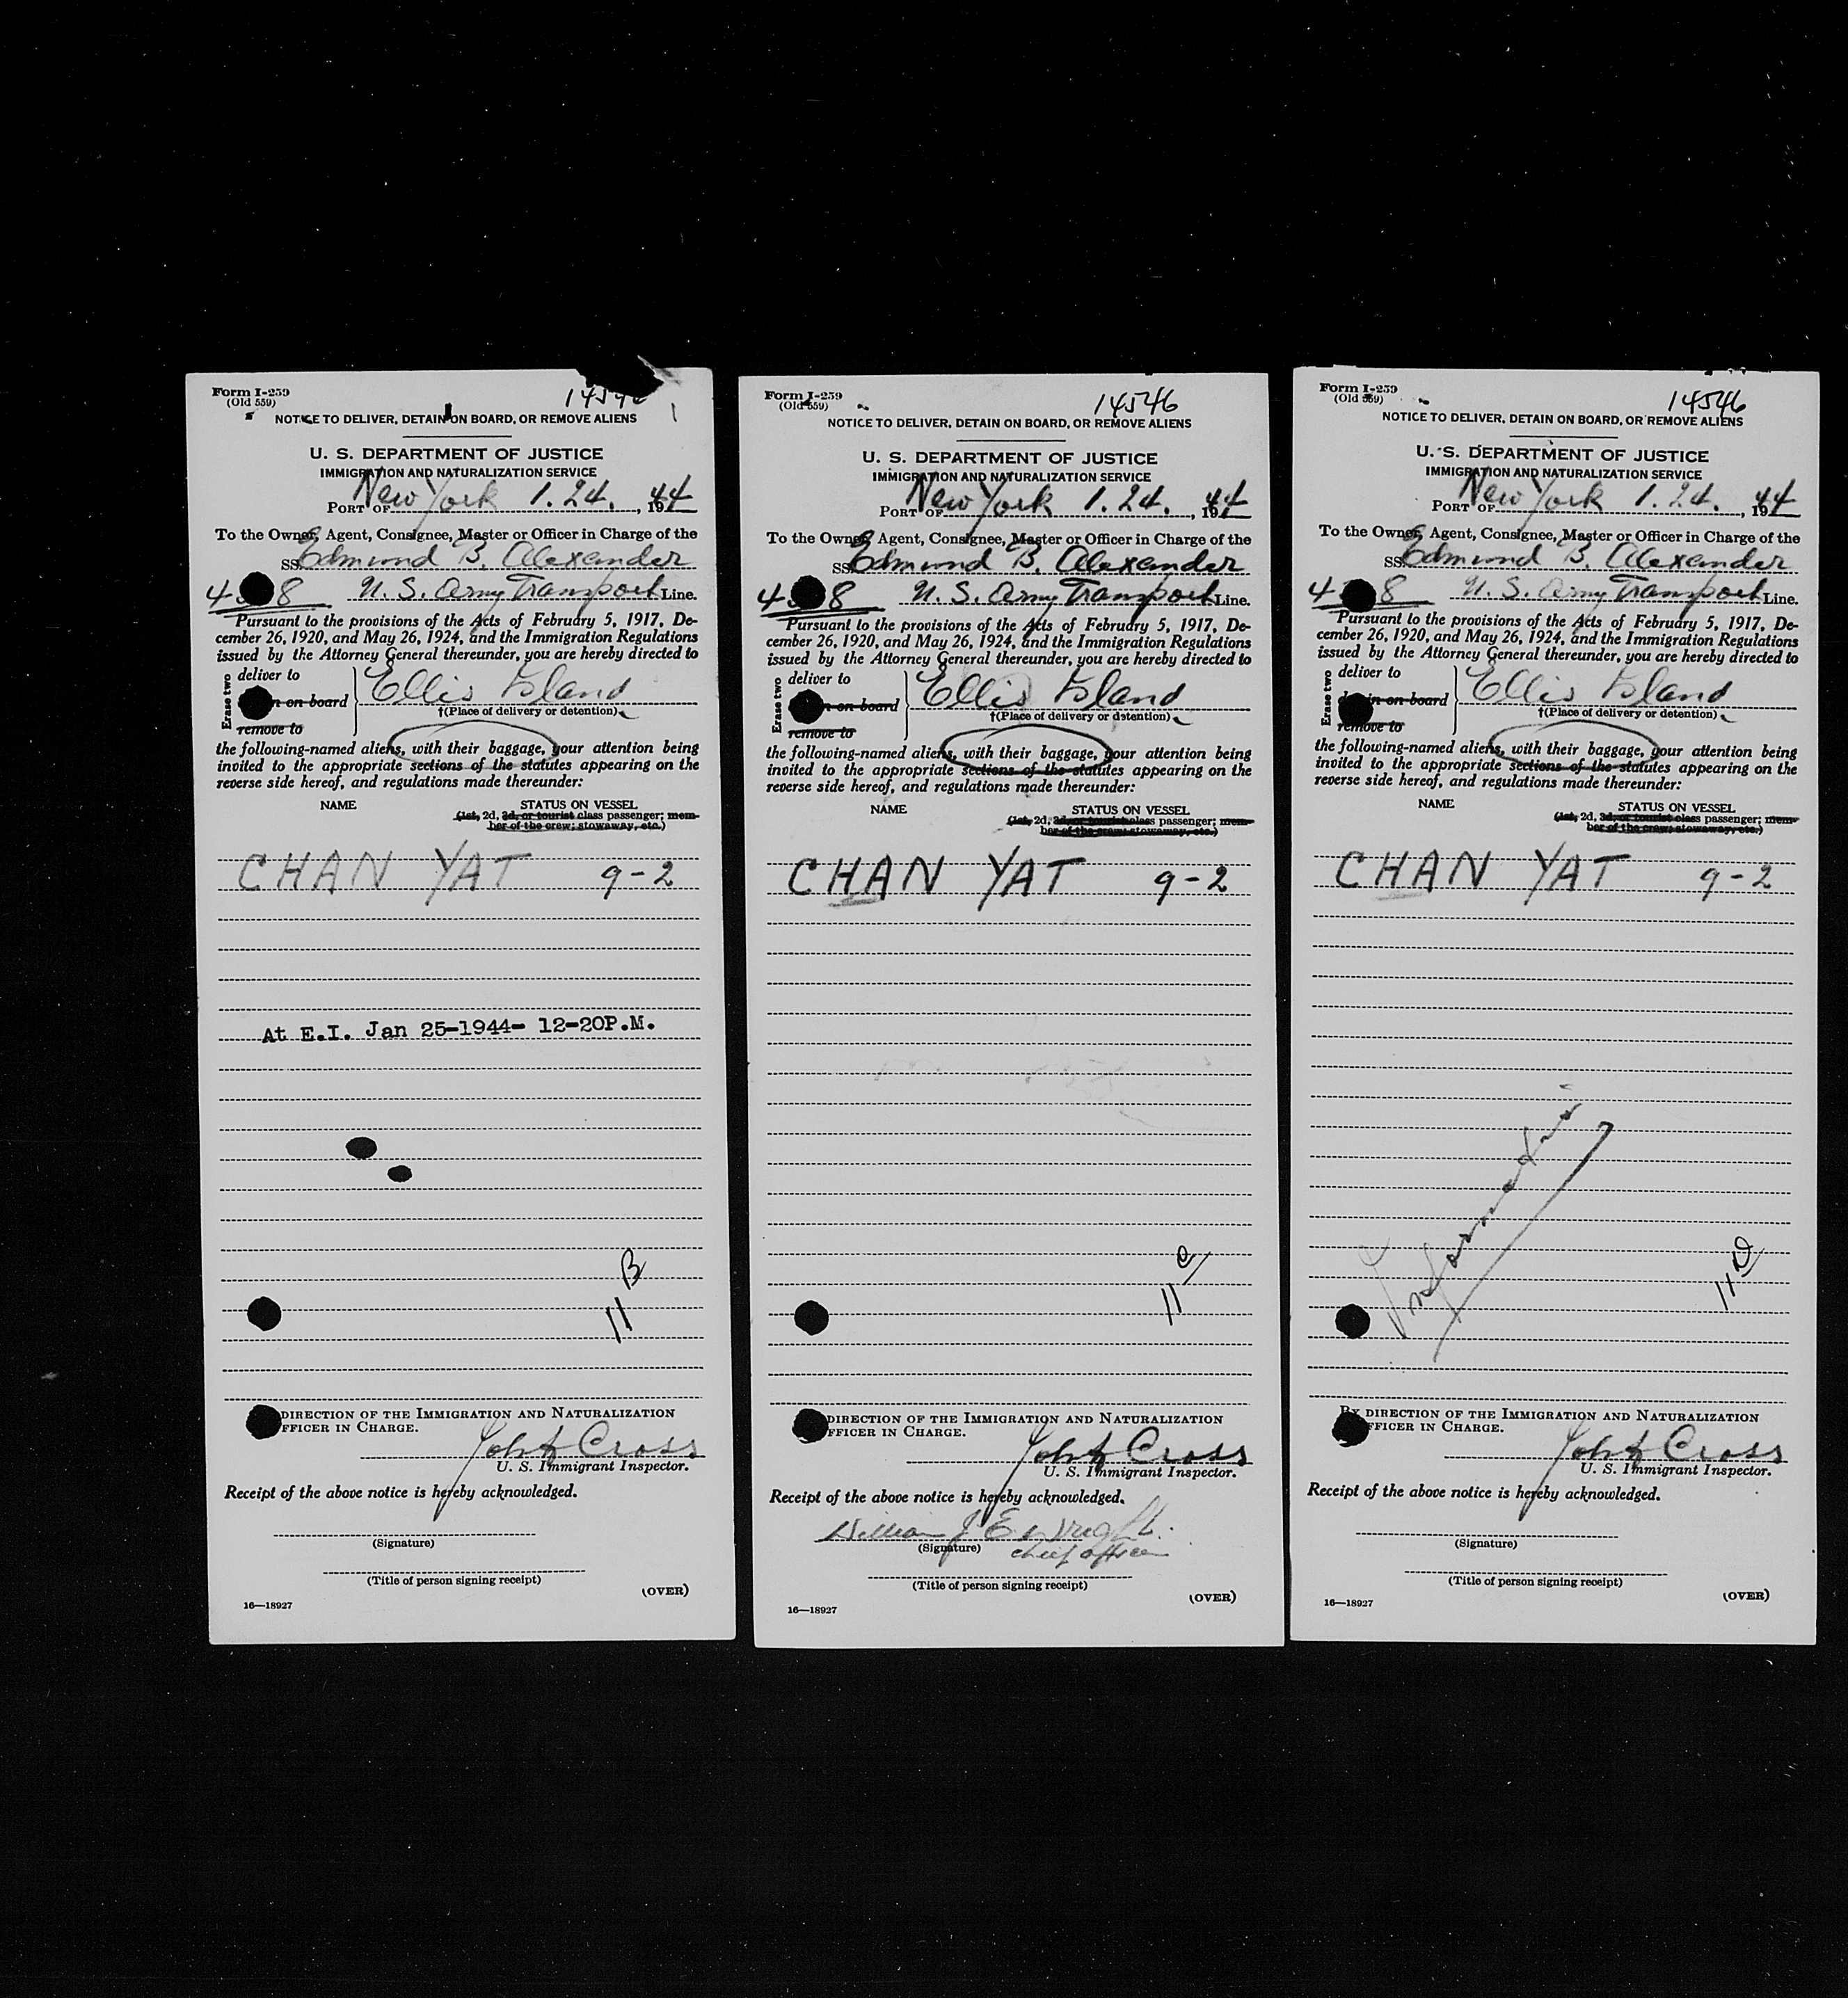 Form I-259
(Old 559)
NOTICE TO DELIVER, DETAIN ON BOARD, OR REMOVE ALIENS
U. S. DEPARTMENT OF JUSTICE
IMMIGRATION AND NATURALIZATION SERVICE
PORT OF New York 1.24., 1944
To the Owner, Agent, Consignee, Master or Officer in Charge of the
SS. Edmund B. Alexander
U. S. Army Transport Line.
Pursuant to the provisions of the Acts of February 5, 1917, De-
cember 26, 1920, and May 26, 1924, and the Immigration Regulations
issued by the Attorney General thereunder, you are hereby directed to
Erase two
deliver to
n on board
remove to
Ellis Island
†(Place of delivery or detention)
the following-named aliens, with their baggage, your attention being
invited to the appropriate sections of the statutes appearing on the
reverse side hereof, and regulations made thereunder:
NAME STATUS ON VESSEL
(1st, 2d, 3d, or tourist class passenger; mem-
ber of the crew; stowaway, etc.)
CHAN YAT 9-2
At E.I. Jan 25-1944- 12-20P.M.
11 B
DIRECTION OF THE IMMIGRATION AND NATURALIZATION
FFICER IN CHARGE.
Cross
U. S. Immigrant Inspector.
Receipt of the above notice is hereby acknowledged.
(Signature)
(Title of person signing receipt)
(OVER)
16—18927
Form I-259
(Old 559)
14546
NOTICE TO DELIVER, DETAIN ON BOARD, OR REMOVE ALIENS
U. S. DEPARTMENT OF JUSTICE
IMMIGRATION AND NATURALIZATION SERVICE
PORT OF New York 1.24., 1944
To the Owner, Agent, Consignee, Master or Officer in Charge of the
SS. Edmund B. Alexander
U. S. Army Transport Line.
Pursuant to the provisions of the Acts of February 5, 1917, De-
cember 26, 1920, and May 26, 1924, and the Immigration Regulations
issued by the Attorney General thereunder, you are hereby directed to
Erase two
deliver to
n on board
remove to
Ellis Island
†(Place of delivery or detention)
the following-named aliens, with their baggage, your attention being
invited to the appropriate sections of the statutes appearing on the
reverse side hereof, and regulations made thereunder:
NAME STATUS ON VESSEL
(1st, 2d, 3d, or tourist class passenger; mem-
ber of the crew; stowaway, etc.)
CHAN YAT 9-2
11 C
DIRECTION OF THE IMMIGRATION AND NATURALIZATION
FFICER IN CHARGE.
Cross
U. S. Immigrant Inspector.
Receipt of the above notice is hereby acknowledged.
William
(Signature) chief officer
(Title of person signing receipt)
(OVER)
16—18927
Form I-259
(Old 559)
14546
NOTICE TO DELIVER, DETAIN ON BOARD, OR REMOVE ALIENS
U. S. DEPARTMENT OF JUSTICE
IMMIGRATION AND NATURALIZATION SERVICE
PORT OF New York 1.24., 1944
To the Owner, Agent, Consignee, Master or Officer in Charge of the
SS. Edmund B. Alexander
U. S. Army Transport Line.
Pursuant to the provisions of the Acts of February 5, 1917, De-
cember 26, 1920, and May 26, 1924, and the Immigration Regulations
issued by the Attorney General thereunder, you are hereby directed to
Erase two
deliver to
in on board
remove to
Ellis Island
†(Place of delivery or detention)
the following-named aliens, with their baggage, your attention being
invited to the appropriate sections of the statutes appearing on the
reverse side hereof, and regulations made thereunder:
NAME STATUS ON VESSEL
(1st, 2d, 3d, or tourist class passenger; mem-
ber of the crew; stowaway, etc.)
CHAN YAT 9-2
11 D
BY DIRECTION OF THE IMMIGRATION AND NATURALIZATION
FFICER IN CHARGE.
Cross
U. S. Immigrant Inspector.
Receipt of the above notice is hereby acknowledged.
(Signature)
(Title of person signing receipt)
(OVER)
16—18927